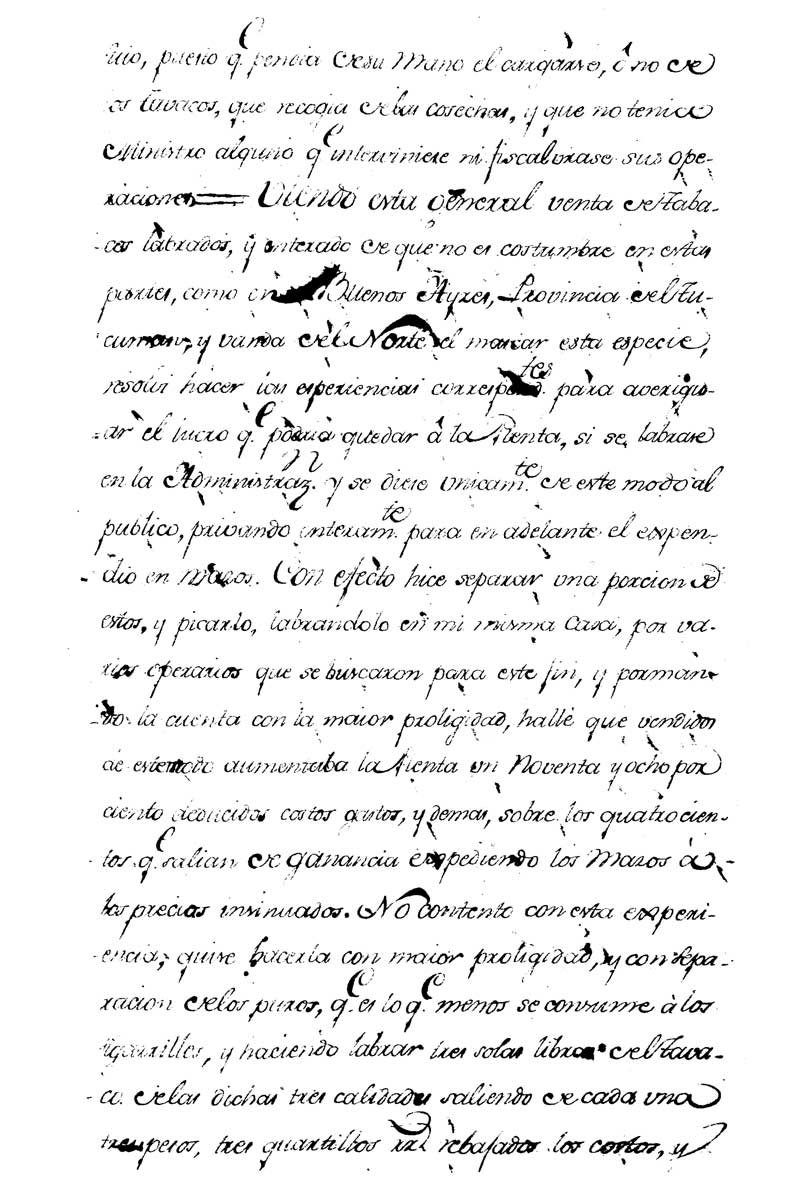 tuio, puesto q.e pendia de su Mano el cargarse, ó no de
los tavacos, que recogia delas cosechas, y que no tenia
Ministro alguno q.e interviniese ni fiscalizase sus ope-
raciones = Viendo esta general venta de Taba-
cos labrados, y enterado de que no es costumbre en estas
partes, como en Buenos Ayres, Provincia del Tu-
cuman, y vanda del Norte el marcar esta especie,
resolvi hacer las esperiencias correspond.tes para averigu-
-ar el lucro q.e podria quedar â la Renta, si se labrase
en la Administraz.n y se diese unicam.te de este modo al
publico, privando interam.te para en adelante el expen-
dio en mazos. Con efecto hice separar una porcion de
estos, y picarlo, labrandolo en mi misma Casa, por va-
rios operarios que se buscaron para este fin, y forman-
-do la cuenta con la maior proligidad, hallé que vendidos
de este modo aumentaba la Renta un Noventa y ocho por
ciento deducidos costos gastos, y demas, sobre los quatrocien-
tos q.e salian de ganancia expediendo los Mazos â
los precios insinuados. No contento con esta experi-
encia, quise hacerla con maior proligidad, y con sepa-
racion delos puros, q.e es lo q.e menos se consume à los
sigarrillos, y haciendo labrar tres solas libras del Tava-
co delas dichas tres calidades saliendo de cada una
tres pesos, tres quartillos rr.l rebajados los costos, y